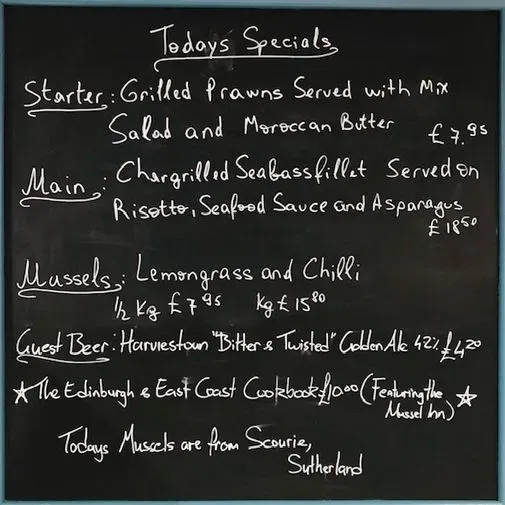 Todays Specials
Starter: Grilled Prawns Served with Mix
Salad and Moroccan Butter £7.95
Main: Chargrilled Seabassfillet Served on
Risotto, Seafood Sauce and Asparagus
£18.50
Mussels: Lemongrass and Chilli
1/2 Kg £7.95 Kg £15.80
Guest Beer: Harviestoun "Bitter & Twisted" Golden Ale 4.2% £4.20
☆ The Edinburgh & East Coast Cookbook £10.00 (Featuring the
Mussel Inn) ☆
Todays Mussels are from Scourie,
Sutherland